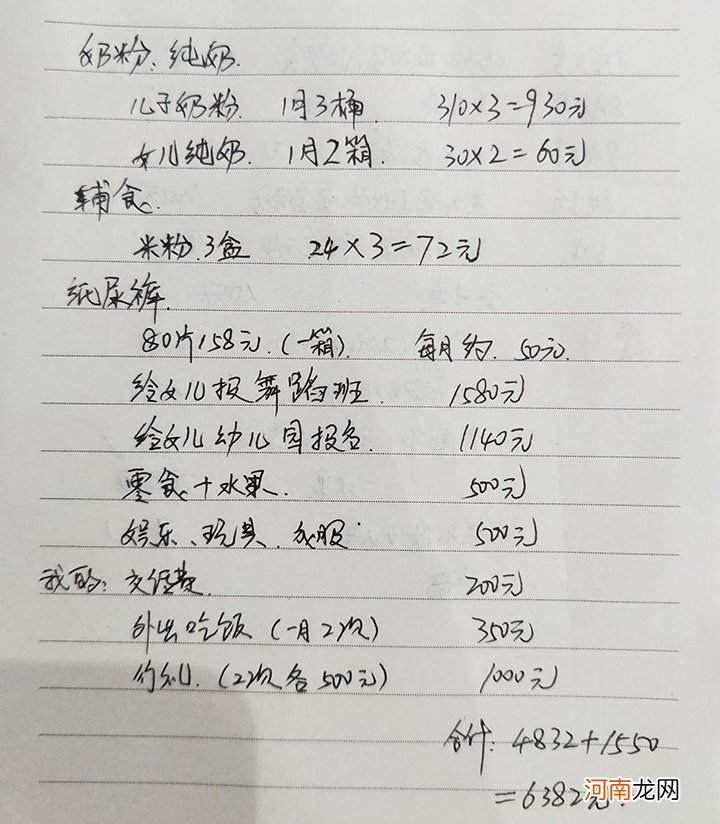 奶粉、纯奶.
儿子奶粉. 1月3桶. 310×3=930元
女儿纯奶. 1月2箱. 30×2=60元
辅食.
米粉.3盒 24×3=72元
纸尿裤.
80片158元.(一箱). 每月约.50元.
给女儿报舞蹈班. 1580元
给女儿幼儿园报名. 1140元
零食+水果. 500元
娱乐、玩具、衣服 500元
我的:交任费. 200元
外出吃饭(一月2次) 350元
份礼.(2次各500元) 1000元
合计:4832+1550
=6382元.
河南龙网